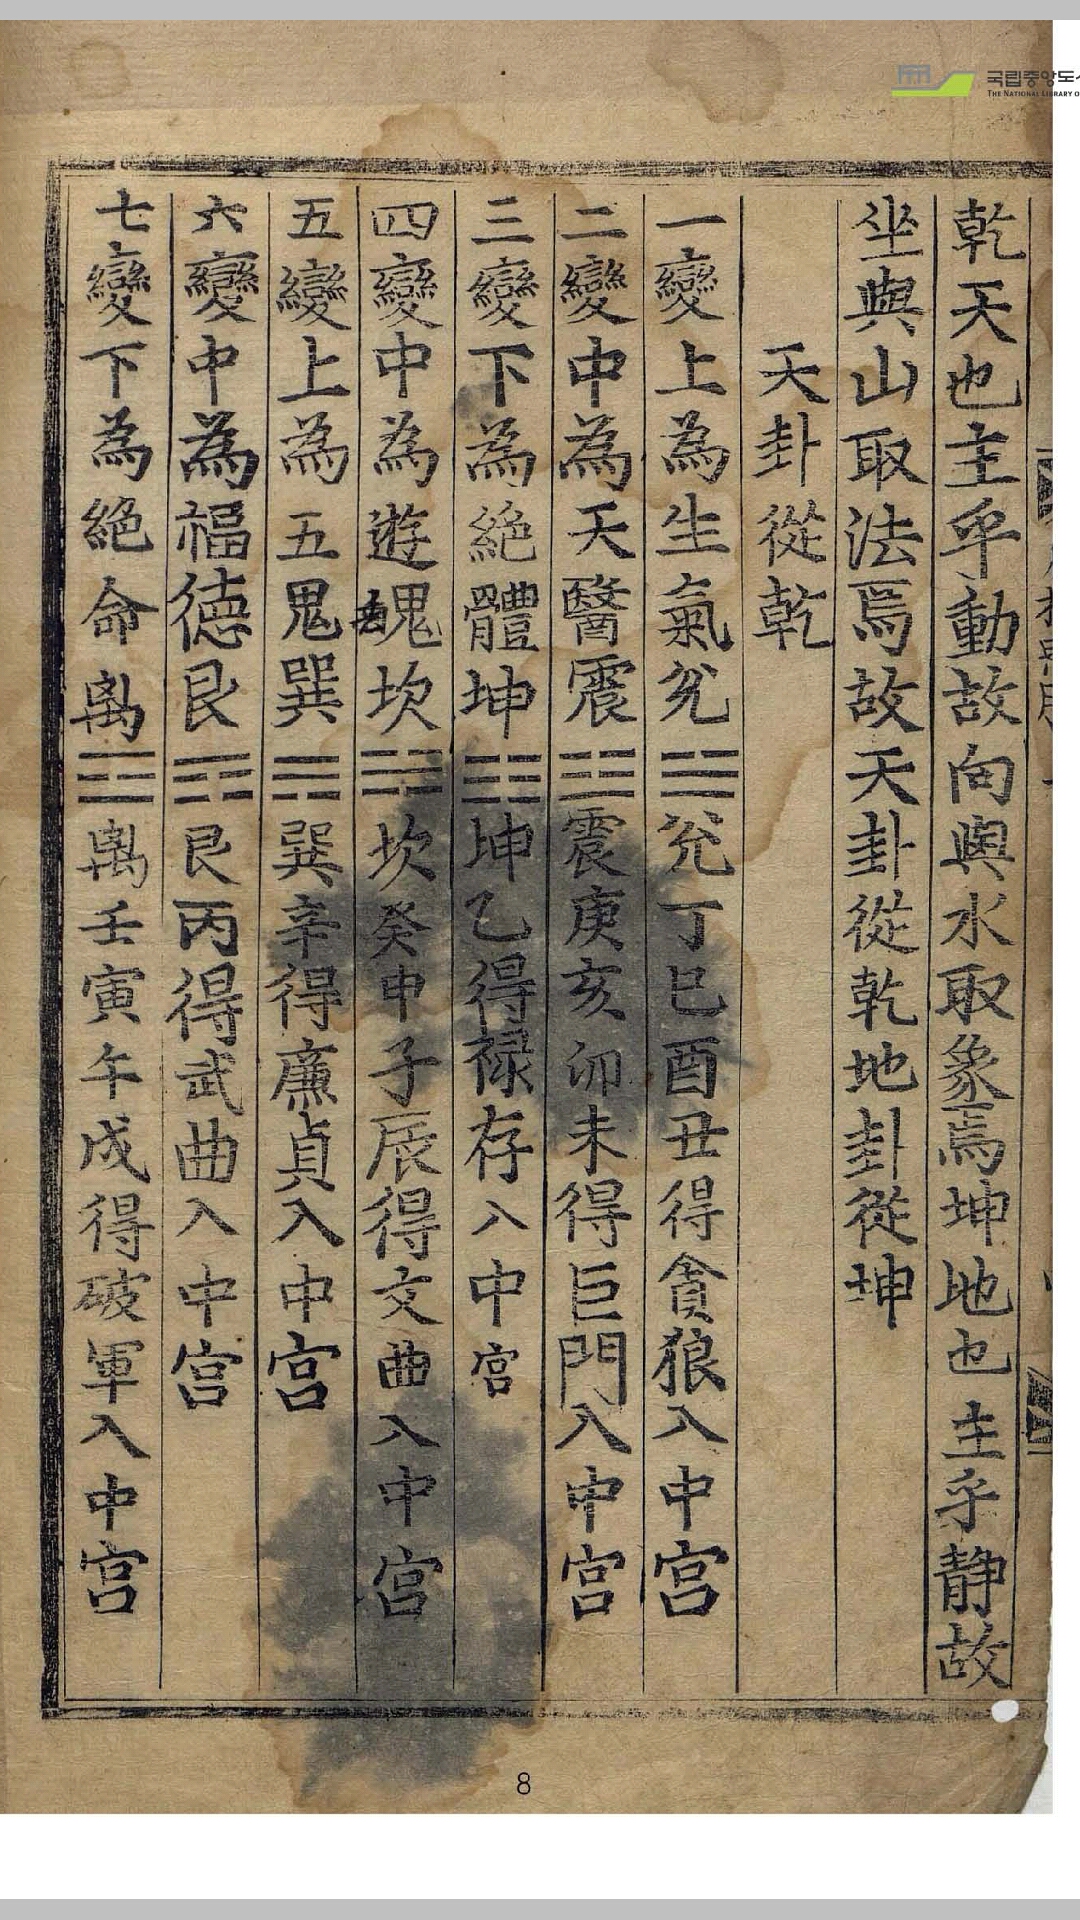 乾天也主乎動故向與水取象焉坤地也主乎静故
坐與山取法焉故天卦從乾地卦從坤
天卦從乾
一變上為生氣兊☱兊丁巳酉丑得貪狼入中宮
二變中為天醫震☳震庚亥卯未得巨門入中宮
三變下為絶體坤☷坤乙得禄存入中宮
四變中為遊魂坎☵坎癸申子辰得文曲入中宮
五變上為五鬼巽☴巽辛得廉貞入中宮
六變中為福德艮☶艮丙得武曲入中宮
七變下為絶命离☲离壬寅午戌得破軍入中宮
국립중앙도
THE NATIONAL LIBRARY O
8